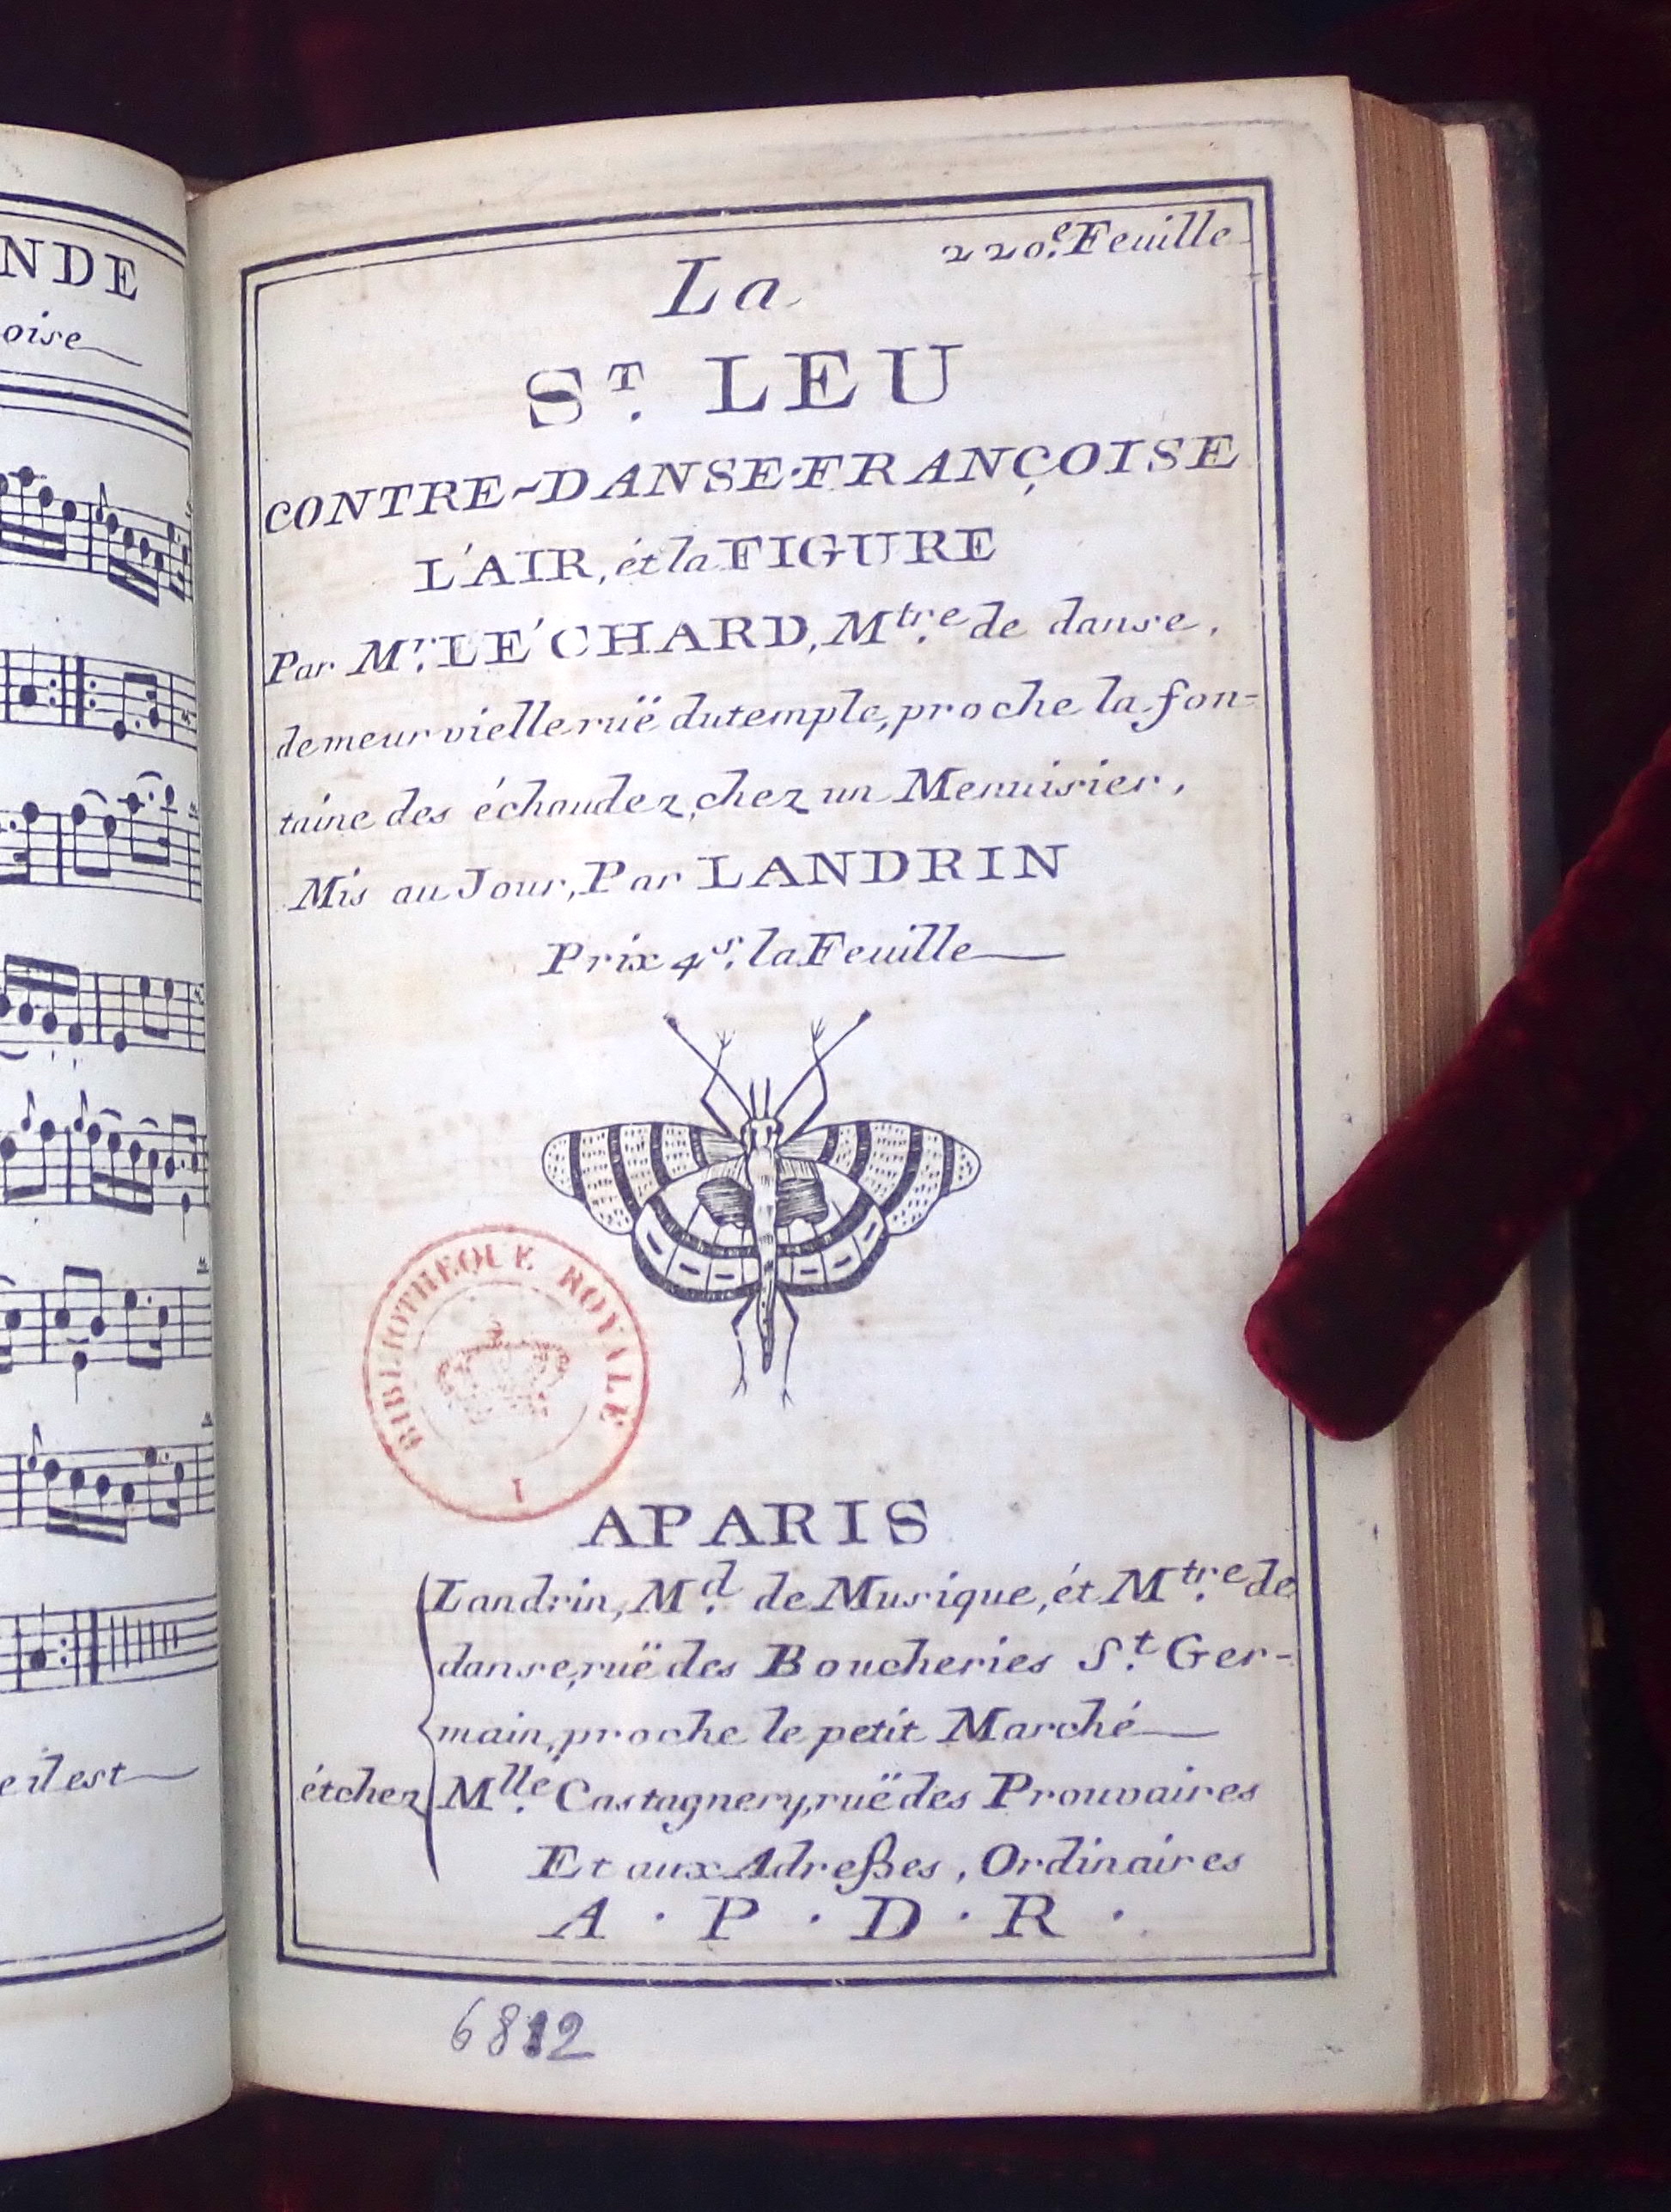 NDE
oise
e il est
220.e Feuille
La
ST. LEU
CONTRE-DANSE·FRANÇOISE
L'AIR, ét la FIGURE
Par Mr. LE'CHARD, Mtre. de danse,
demeur vielle ruë du temple, proche la fon=
taine des échaudez, chez un Menuisier,
Mis au Jour, Par LANDRIN
Prix 4s. la Feuille
BIBLIOTHEQUE ROYALE
I
A PARIS
Landrin, Md. de Musique, ét Mtre. de
danse, ruë des Boucheries St. Ger-
main, proche le petit Marché
ét chez Mlle. Castagnery, ruë des Prouvaires
Et aux Adreßes, Ordinaires
A · P · D · R ·
6812